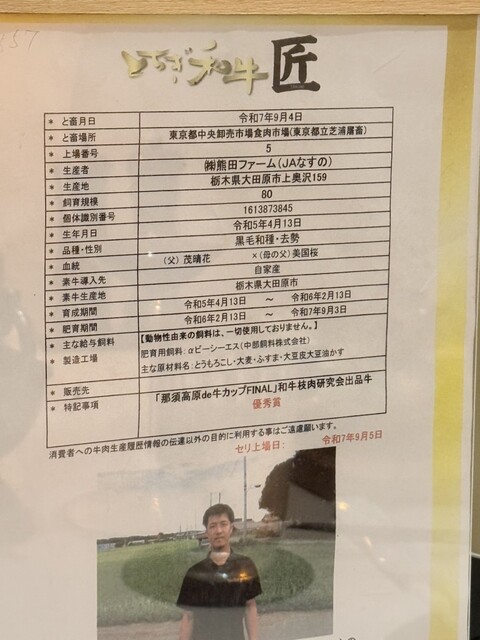 とちぎ和牛 匠
* と畜月日 令和7年9月4日
* と畜場所 東京都中央卸売市場食肉市場(東京都立芝浦屠畜)
* 上場番号 5
* 生産者 ㈱熊田ファーム(JAなすの)
* 生産地 栃木県大田原市上奥沢159
* 飼育規模 80
* 個体識別番号 1613873845
* 生年月日 令和5年4月13日
* 品種・性別 黒毛和種・去勢
* 血統 (父) 茂晴花 ×(母の父)美国桜
* 素牛導入先 自家産
* 素牛生産地 栃木県大田原市
* 育成期間 令和5年4月13日 ～ 令和6年2月13日
* 肥育期間 令和6年2月13日 ～ 令和7年9月3日
* 主な給与飼料 【動物性由来の飼料は、一切使用しておりません。】
* 製造工場 肥育用飼料:αビーシーエス(中部飼料株式会社)
主な原材料名:とうもろこし・大麦・ふすま・大豆皮大豆油かす
* 販売先
* 特記事項 「那須高原de牛カップFINAL」和牛枝肉研究会出品牛
優秀賞
消費者への牛肉生産履歴情報の伝達以外の目的に利用する事はご遠慮願います。
セリ上場日: 令和7年9月5日